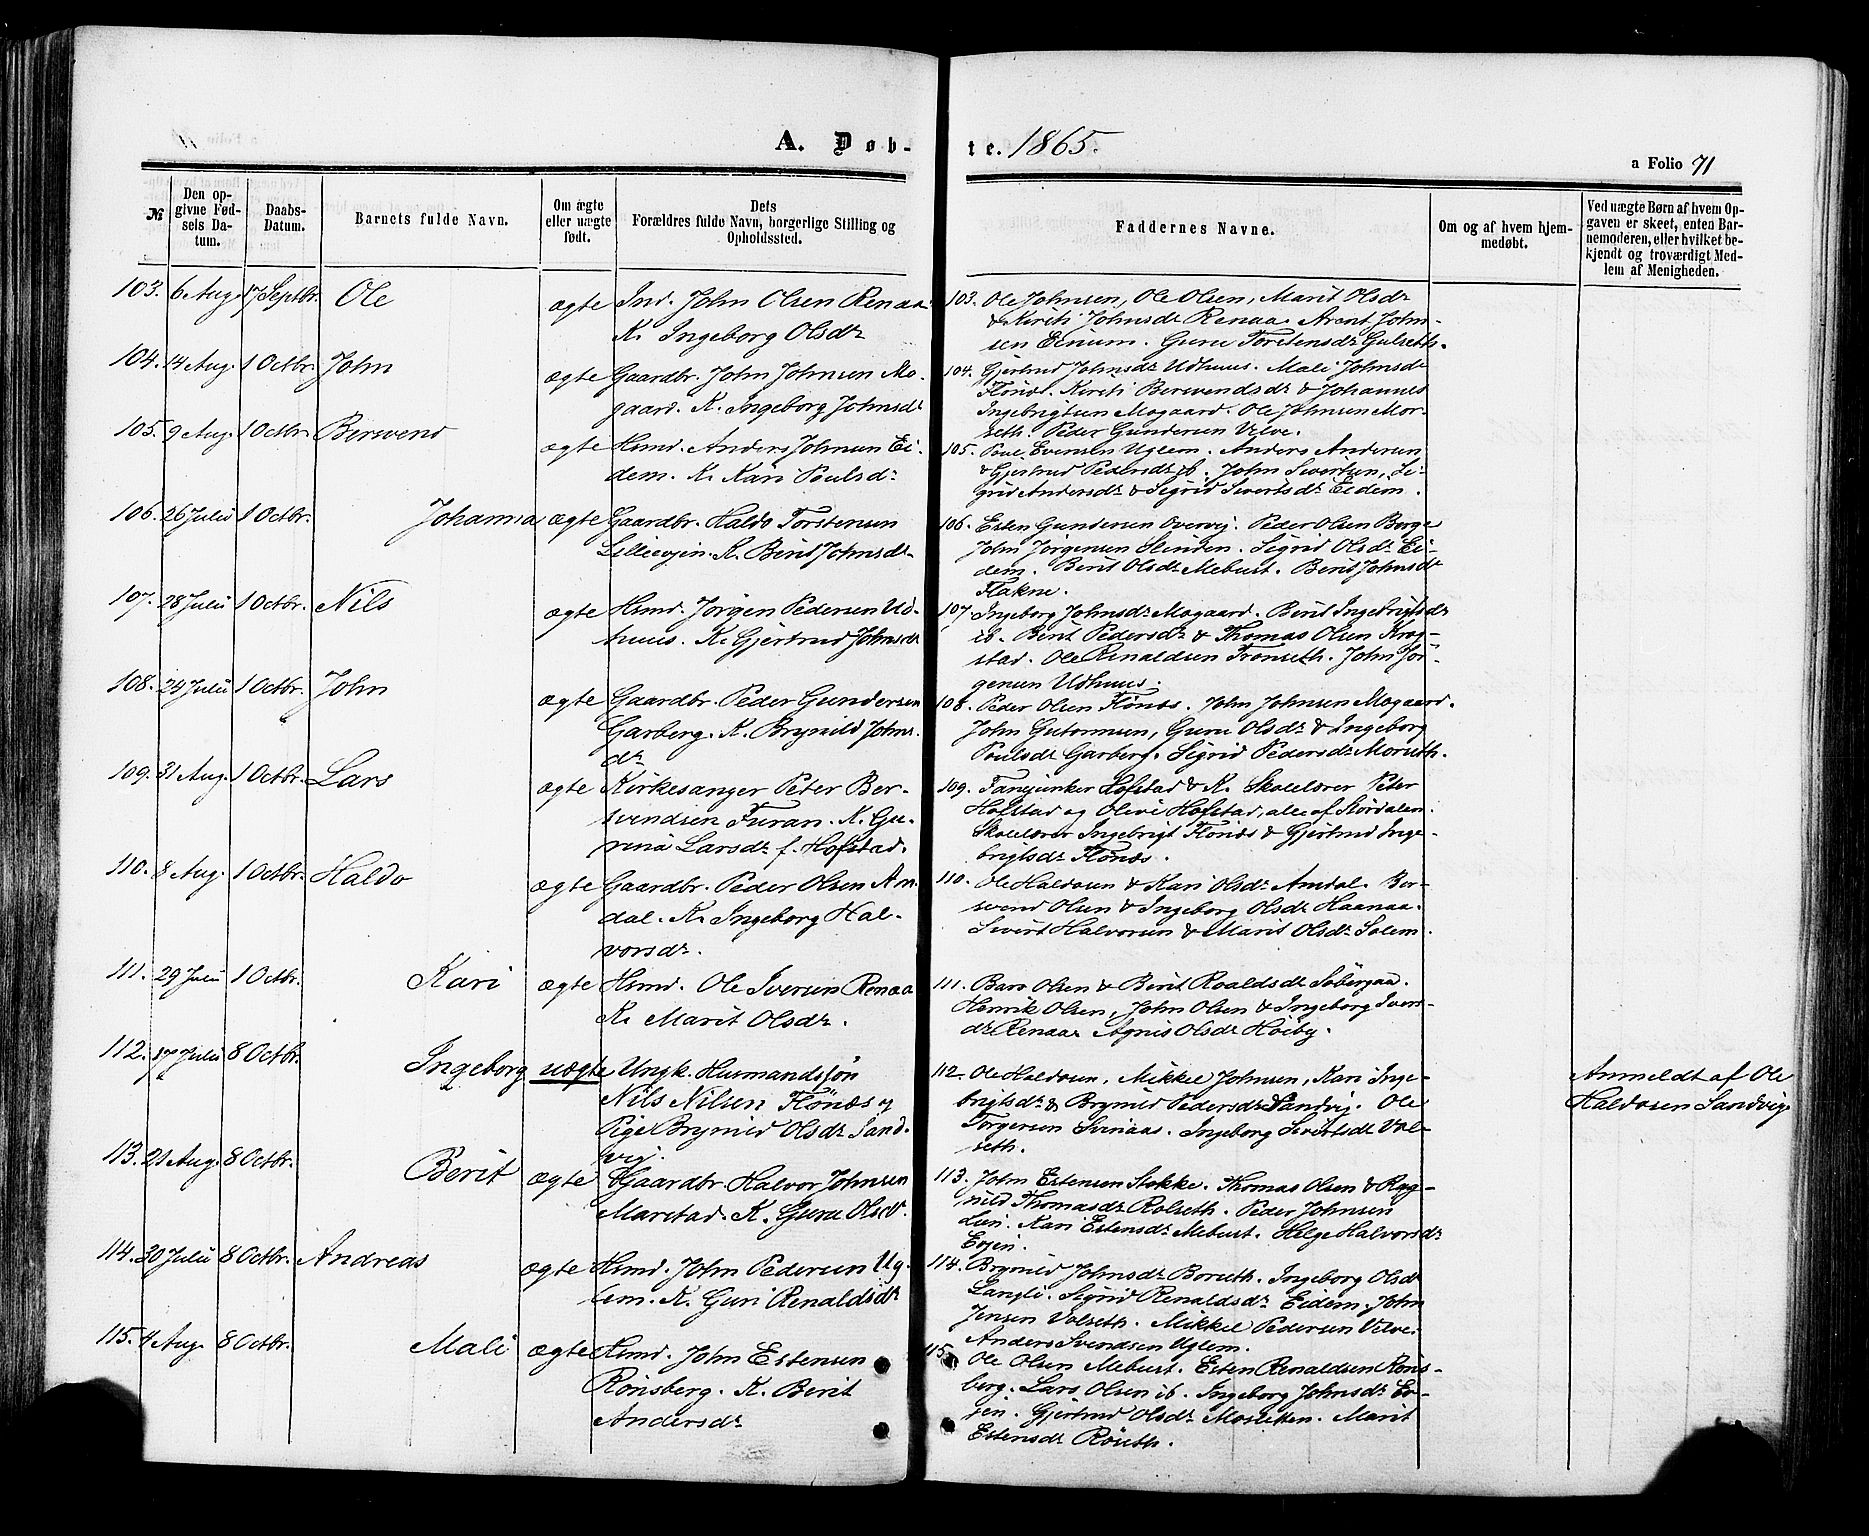 A. Døb-
te. 1865.
a Folio 71
№
Den op-
givne Fød-
sels Da-
tum.
Daabs-
Datum.
Barnets fulde Navn.
Om ægte
eller uægte
født.
Dets
Forældres fulde Navn, borgerlige Stilling og
Opholdssted.
Faddernes Navne.
Om og af hvem hjem-
medøbt.
Ved uægte Børn af hvem Op-
gaven er skeet, enten Bar-
nemoderen, eller hvilket be-
kjendt og troværdigt Med-
lem af Menigheden.
103. 6 Aug. 17 Septbr. Ole ægte Ind. John Olsen Renaa
K. Ingeborg Olsdr
103. Ole Johnsen, Ole Olsen, Marit Olsdr
& Kirsti Johnsdr Renaa. Arent John-
sen Einum. Guru Torstensdr Gulseth.
104. 14 Aug. 1 Octbr. John ægte Gaardbr. John Johnsen Mo-
gaard. K. Ingeborg Johnsdr
104. Gjertrud Johnsdr Udhuus. Mali Johnsdr
Flönæs. Kirsti Bersvendsdr & Johannes
Ingebrigtsen Mogaard. Ole Johnsen Mor-
seth. Peder Gundersen Velve.
105. 9 Aug. 1 Octbr. Bersvend ægte Hsmd. Anders Johnsen Ei-
dem. K. Kari Poulsdr
105. Poul Evensen Uglem. Anders Andersen
& Gjertrud Pedersdr ib. John Sivertsen, Si-
grid Andersdr & Sigrid Sivertsdr Eidem.
106. 26 Juli 1 Octbr. Johanna ægte Gaardbr. Haldo Torstensen
Lillevjen. K. Berit Johnsdr
106. Esten Gundersen Overvig. Peder Olsen Berge
John Jörgensen Slinden. Sigrid Olsdr Ei-
dem. Berit Olsdr Mebust. Berit Johnsdr
Flakne.
107. 28 Juli 1 Octbr. Nils ægte Hsmd. Jörgen Pedersen Ud-
huus. K. Gjertrud Johnsdr
107. Ingeborg Johnsdr Mogaard. Berit Ingebrigtsdr
ib. Berit Pedersdr & Thomas Olsen Krog-
stad. Ole Renaldsen Tronseth. John Jör-
gensen Udhuus.
108. 24 Juli 1 Octbr. John ægte Gaardbr. Peder Gundersen
Garberg. K. Brynild Johns-
dr
108. Peder Olsen Flönæs. John Johnsen Mogaard.
John Guttormsen, Guru Olsdr & Ingeborg
Poulsdr Garberg. Sigrid Pedersdr Morseth.
109. 31 Aug. 1 Octbr. Lars ægte Kirkesanger Peter Ber-
svendsen Furan. K. Gu-
rina Larsdr f. Hofstad.
109. Fanejunker Hofstad & K. Skolelærer Peter
Hofstad og Olive Hofstad, alle af Størdalen.
Skolelærer Ingebrigt Flönæs & Gjertrud Inge-
brigtsdr Flönæs.
110. 8 Aug. 1 Octbr. Haldo ægte Gaardbr. Peder Olsen Am-
dal. K. Ingeborg Hal-
vorsdr.
110. Ole Haldosen & Kari Olsdr Amdal. Ber-
svend Olsen & Ingeborg Olsdr Haanaa.
Sivert Halvorsen & Marit Olsdr Solem.
111. 29 Juli 1 Octbr. Kari ægte Hsmd. Ole Iversen Renaa
K. Marit Olsdr.
111. Baro Olsen & Berit Roaldsdr Sobergaa.
Henrik Olsen, John Olsen & Ingeborg Ivers-
dr Renaa. Agnis Olsdr Høiby.
112. 17 Juli 8 Octbr. Ingeborg uægte Ungk. Husmandssøn
Nils Nilsen Flönæs og
Pige Brynild Olsdr Sand-
vig.
112. Ole Haldosen, Mikkel Johnsen, Kari Inge-
brigtsdr & Brynild Pedersdr Sandvig. Ole
Torgersen Svinaas. Ingeborg Sivertsdr Val-
seth.
Anmeldt af Ole
Haldosen Sandvig.
113. 21 Aug. 8 Octbr. Berit ægte Gaardbr Halvor Johnsen
Marstad. K. Guru Olsdr.
113. John Estensen Stokke. Thomas Olsen & Rag-
nild Thomasdr Rolseth. Peder Johnsen
Lien. Kari Estensdr Mebust. Helge Halvorsdr
Evjen.
114. 30 Juli 8 Octbr. Andreas ægte Hsmd. John Pedersen Ug-
lem. K. Guri Renaldsdr
114. Brynild Johnsdr Borseth. Ingeborg Olsdr
Langli. Sigrid Renaldsdr Eidem. John
Jensen Valseth. Mikkel Pedersen Velve.
Anders Svendsen Uglem.
115. 4 Aug. 8 Octbr. Mali ægte Hsmd. John Estensen
Rönsberg. K. Berit
Andersdr
115. Ole Olsen Mebust. Esten Renaldsen Röns-
berg. Lars Olsen ib. Ingeborg Johnsdr Ev-
jen. Gjertrud Olsdr Mosletten. Marit
Estensdr Röseth.